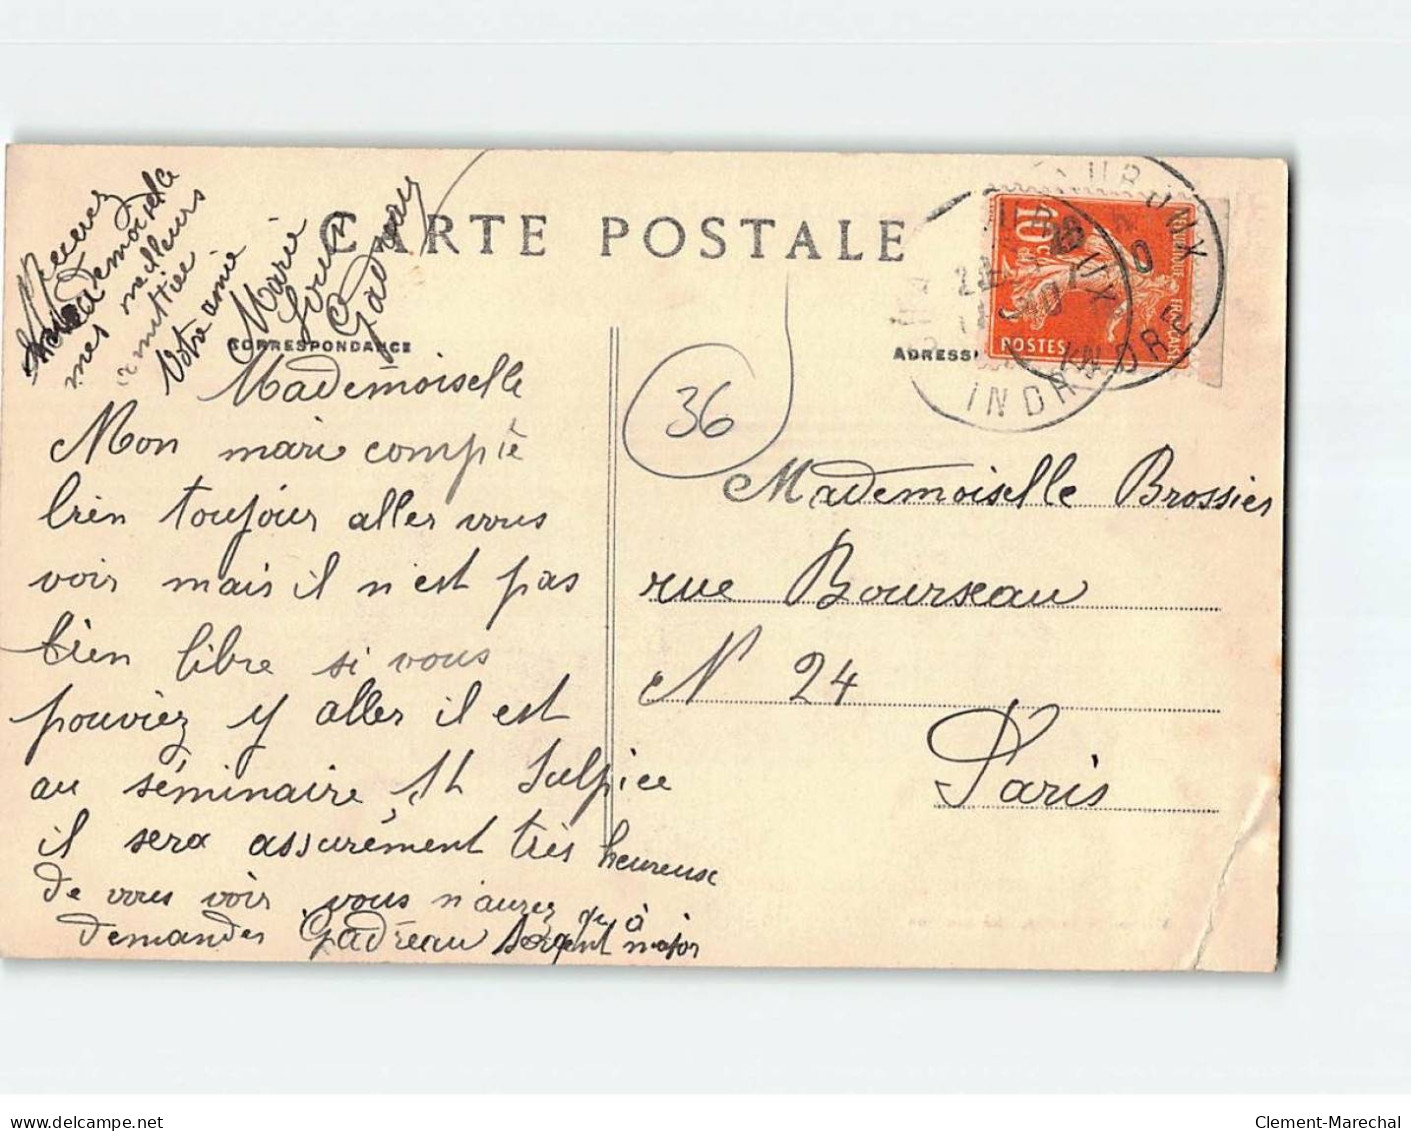 CARTE POSTALE
CORRESPONDANCE
ADRESSE
Mademoiselle
Mon mari compte
bien toujours aller vous
voir mais il n'est pas
bien libre si vous
pouviez y aller il est
au séminaire St Sulpice
il sera assurément très heureuse
de vous voir vous n'aurez qu'à
demander Gadreau Sergent major
Recevez
Mademoiselle
mes meilleurs
amitiés
Votre amie
Marie
Gadreau
36
10c
REPUBLIQUE FRANCAISE
POSTES
INDRE
INDRE
Mademoiselle Brossier
rue Bourseau
N 24
Paris
delcampe.net
Clement-Marechal